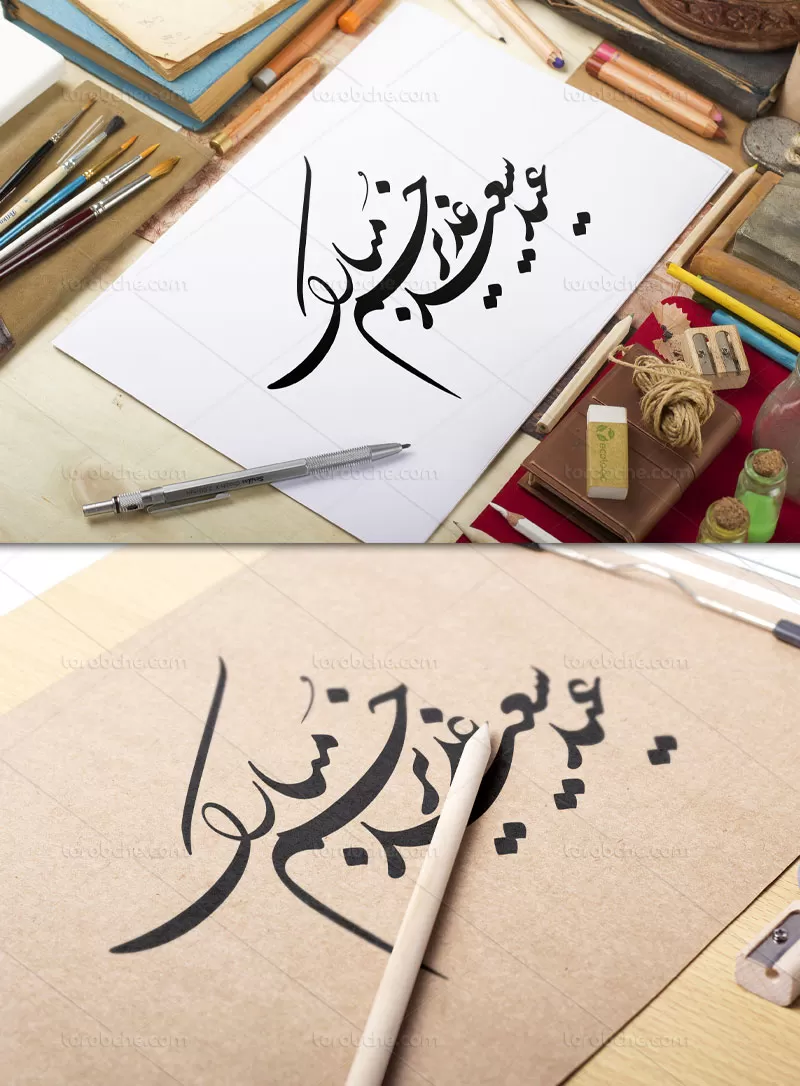 torobche.com torobche.com torobche.com
عید سعید غدیر خم مبارک
torobche.com torobche.com torobche.com
torobche.com torobche.com torobche.com
torobche.com torobche.com torobche.com
عید سعید غدیر خم مبارک
torobche.com torobche.com torobche.com
torobche.com torobche.com torobche.com